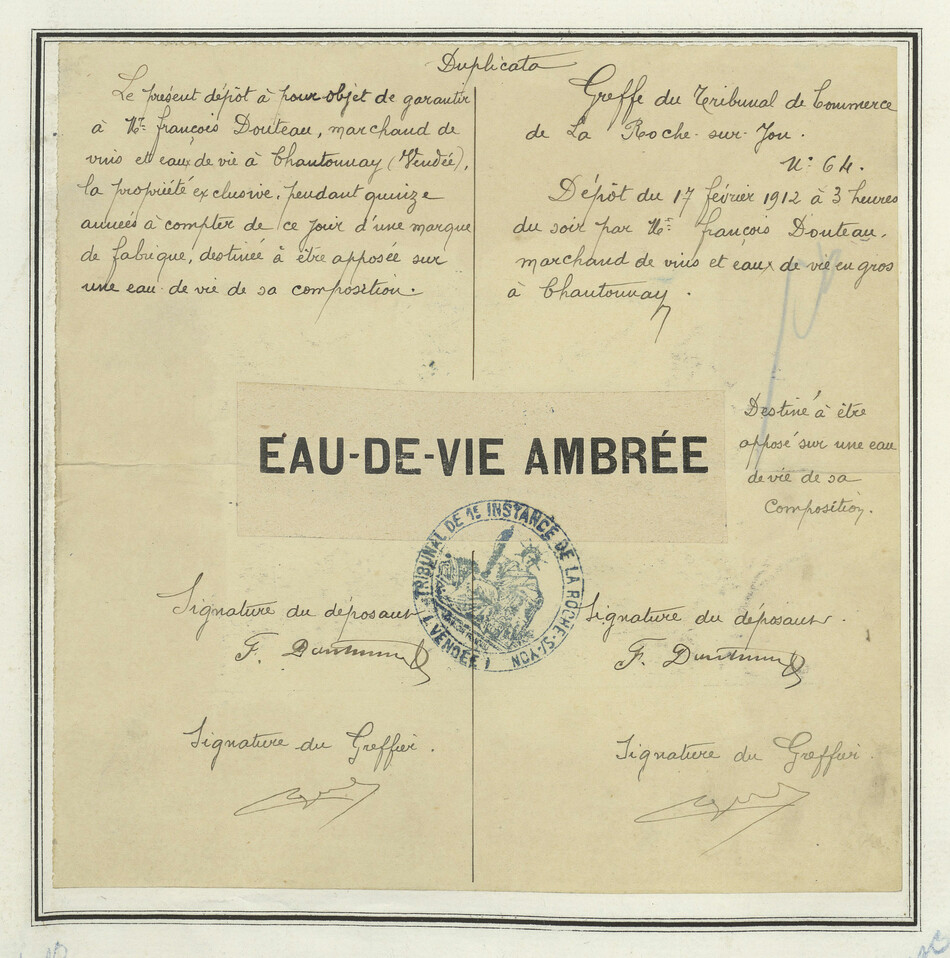 Duplicata
Le présent dépôt à pour objet de garantir
à Mr françois Douteau, marchand de
vins et eaux de vie à Chantonnay (Vendée),
la propriété exclusive, pendant quinze
années à compter de ce jour d'une marque
de fabrique, destinée à être apposée sur
une eau de vie de sa composition.
Greffe du Tribunal de Commerce
de La Roche-sur-Yon.
N° 64.
Dépôt du 17 février 1912 à 3 heures
du soir par Mr françois Douteau,
marchand de vins et eaux de vie en gros
à Chantonnay.
EAU-DE-VIE AMBRÉE
Destiné à être
apposé sur une eau
de vie de sa
Composition.
TRIBUNAL DE 1E INSTANCE DE LA ROCHE-S/-YON
(VENDÉE)
Signature du déposant
F. Douteau
Signature du Greffier.
Signature du déposant.
F. Douteau
Signature du Greffier.